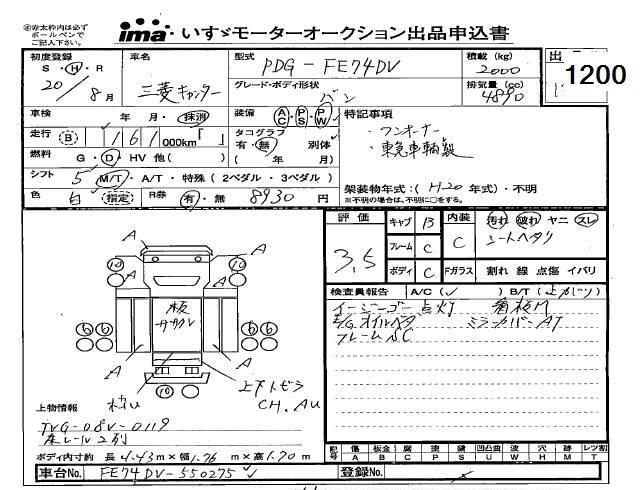 ※赤太枠内は必ずボールペンでご記入下さい。
ima いすゞモーターオークション出品申込書
初度登録 S・H・R 20年 8月
車名 三菱キャンター
型式 PDG-FE74DV
グレード・ボディ形状 バン
積載 (kg) 2000
排気量 (cc) 4890
出
1200
車検 年・月・抹消
装備 AC PS PW
特記事項
・ワンオーナー
・東急車輌製
走行 B 161 000km「 」
タコグラフ 有・無 別体 ( 年 月)
燃料 G・D・HV 他( )
シフト 5 M/T・A/T・特殊 (2ペダル・3ペダル)
架装物年式:(H-20 年式)・不明
※不明の場合は、不明に○をする。
色 白 指定 R券 有・無 8930 円
評価 3.5
キャブ B 内装 C 汚れ 破れ ヤニ スレ
シートヘタリ
フレーム C
ボディ C Fガラス 割れ 線 点傷 イバリ
検査員報告 A/C(✓) B/T(上がり)
イージーゴー点灯 看板M
E/Gオイルベタ ミラーカバーAT
フレームSC
A A A A A A
10 10 6 6 6 6 10
板ササクレ
上下トビラ
CH.AU
上物情報
TVG-08V-0119
床レール2列
ボディ内寸約 長 4.43m×幅 1.76m×高 1.70m
記号 傷A 板金B 腐C 塗P 錆S 凹凸曲U 波W 穴H 跡M レツ割T
車台No. FE74DV-550275
登録No.